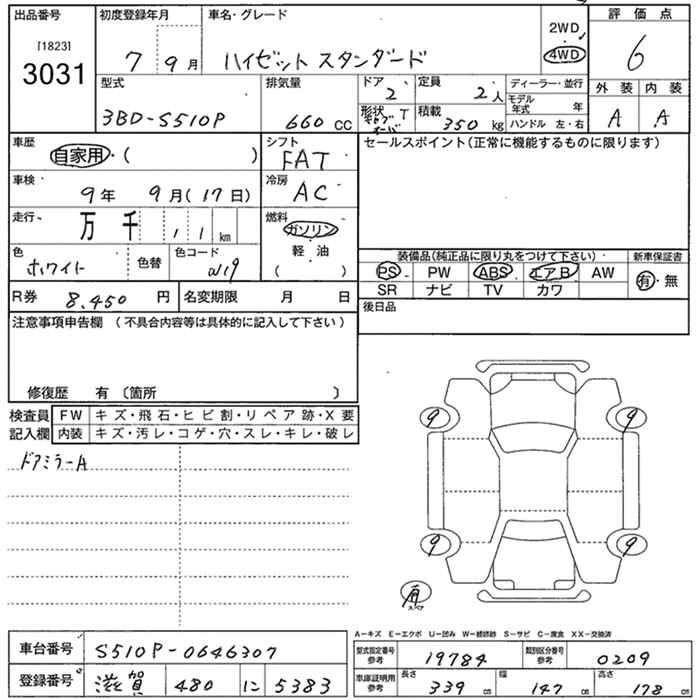 出品番号 初度登録年月 車名・グレード 2WD 評価点
[1823] 3031 7 9月 ハイゼット スタンダード 4WD 6
型式 排気量 ドア 2 定員 2人 ディーラー・並行 外装 内装
3BD-S510P 660 CC 形状 積載 350 kg モデル年式 年 A A
ハンドル 左・右
車歴 自家用・( ) シフト FAT セールスポイント(正常に機能するものに限ります)
車検 9年 9月(17日) 冷房 AC
走行 万 千 1 1 km 燃料 ガソリン
軽・油
( )
色 ホワイト 色替 色コード W19
装備品(純正品に限り丸をつけて下さい) 新車保証書
PS PW ABS エアB AW 有・無
SR ナビ TV カワ
R券 8,450 円 名変期限 月 日 後日品
注意事項申告欄 (不具合内容等は具体的に記入して下さい)
修復歴 有 〔箇所 〕
検査員 FW キズ・飛石・ヒビ割・リペア跡・X要
記入欄 内装 キズ・汚レ・コゲ・穴・スレ・キレ・破レ
ドアミラーA
9 9
9 9
有 スペア
A-キズ E-エクボ U-凹み W-補修跡 S-サビ C-腐食 XX-交換済
車台番号 S510P-0646307 型式指定番号 参考 19784 類別区分番号 参考 0209
登録番号 滋賀 480 に 5383 車庫証明用 参考 長さ 339 cm 幅 147 cm 高さ 178 cm